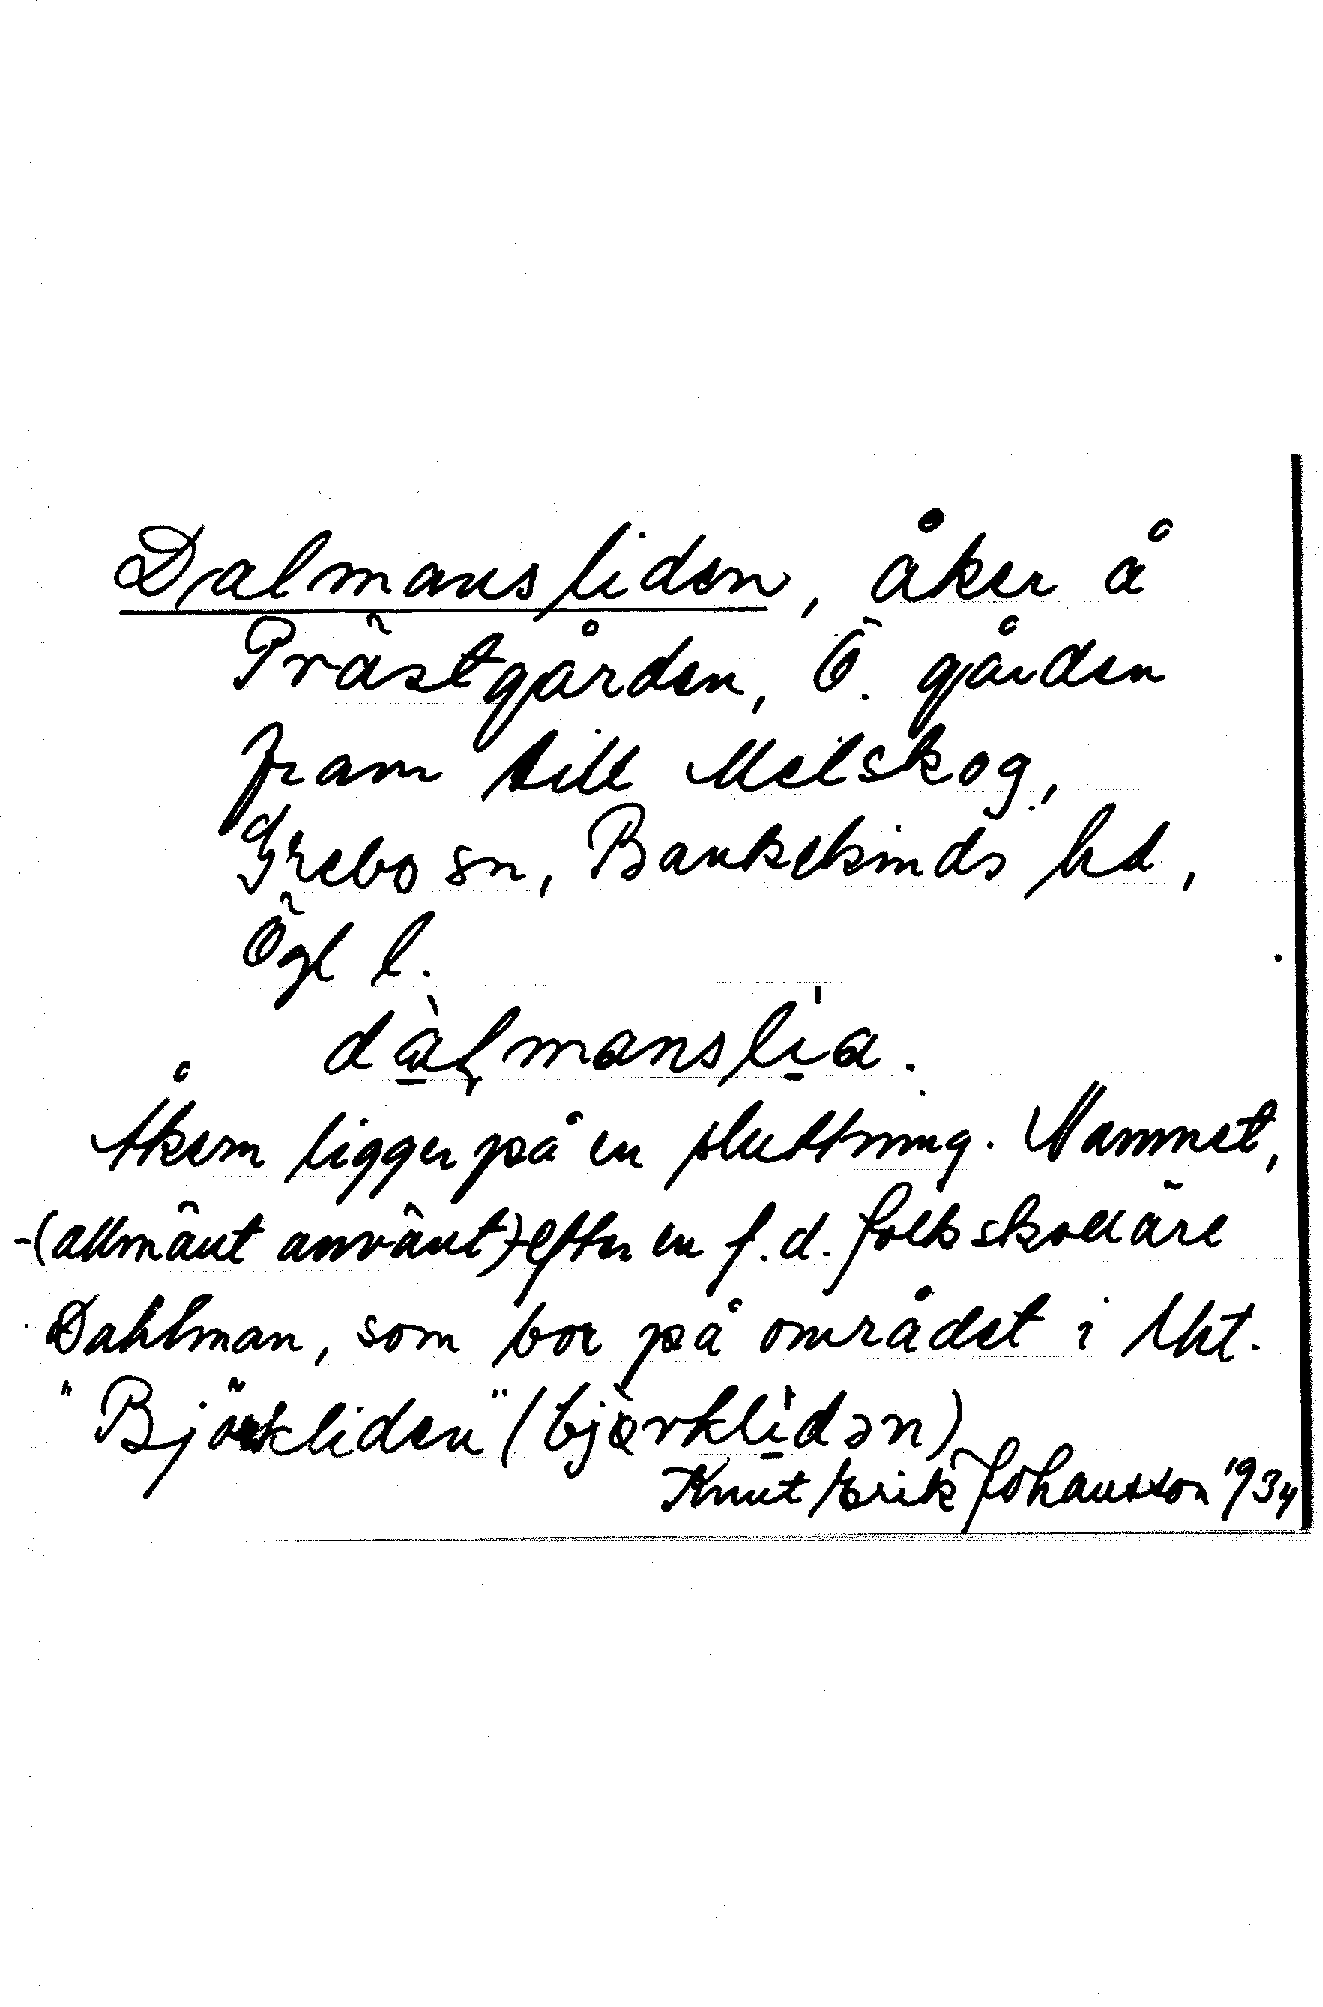 Dalmansliden, åker å
Prästgården, Ö. gården
fram till Melskog,
Grebo sn, Bankekinds hd,
Ögl l.
dàɭmanslìa.
Åkern ligger på en sluttning. Namnet,
-(allmänt använt)- efter en f.d. folkskollär
Dahlman, som bor på området i lht.
"Björkliden" (bjørklìdən)
Knut Erik Johansson 1934